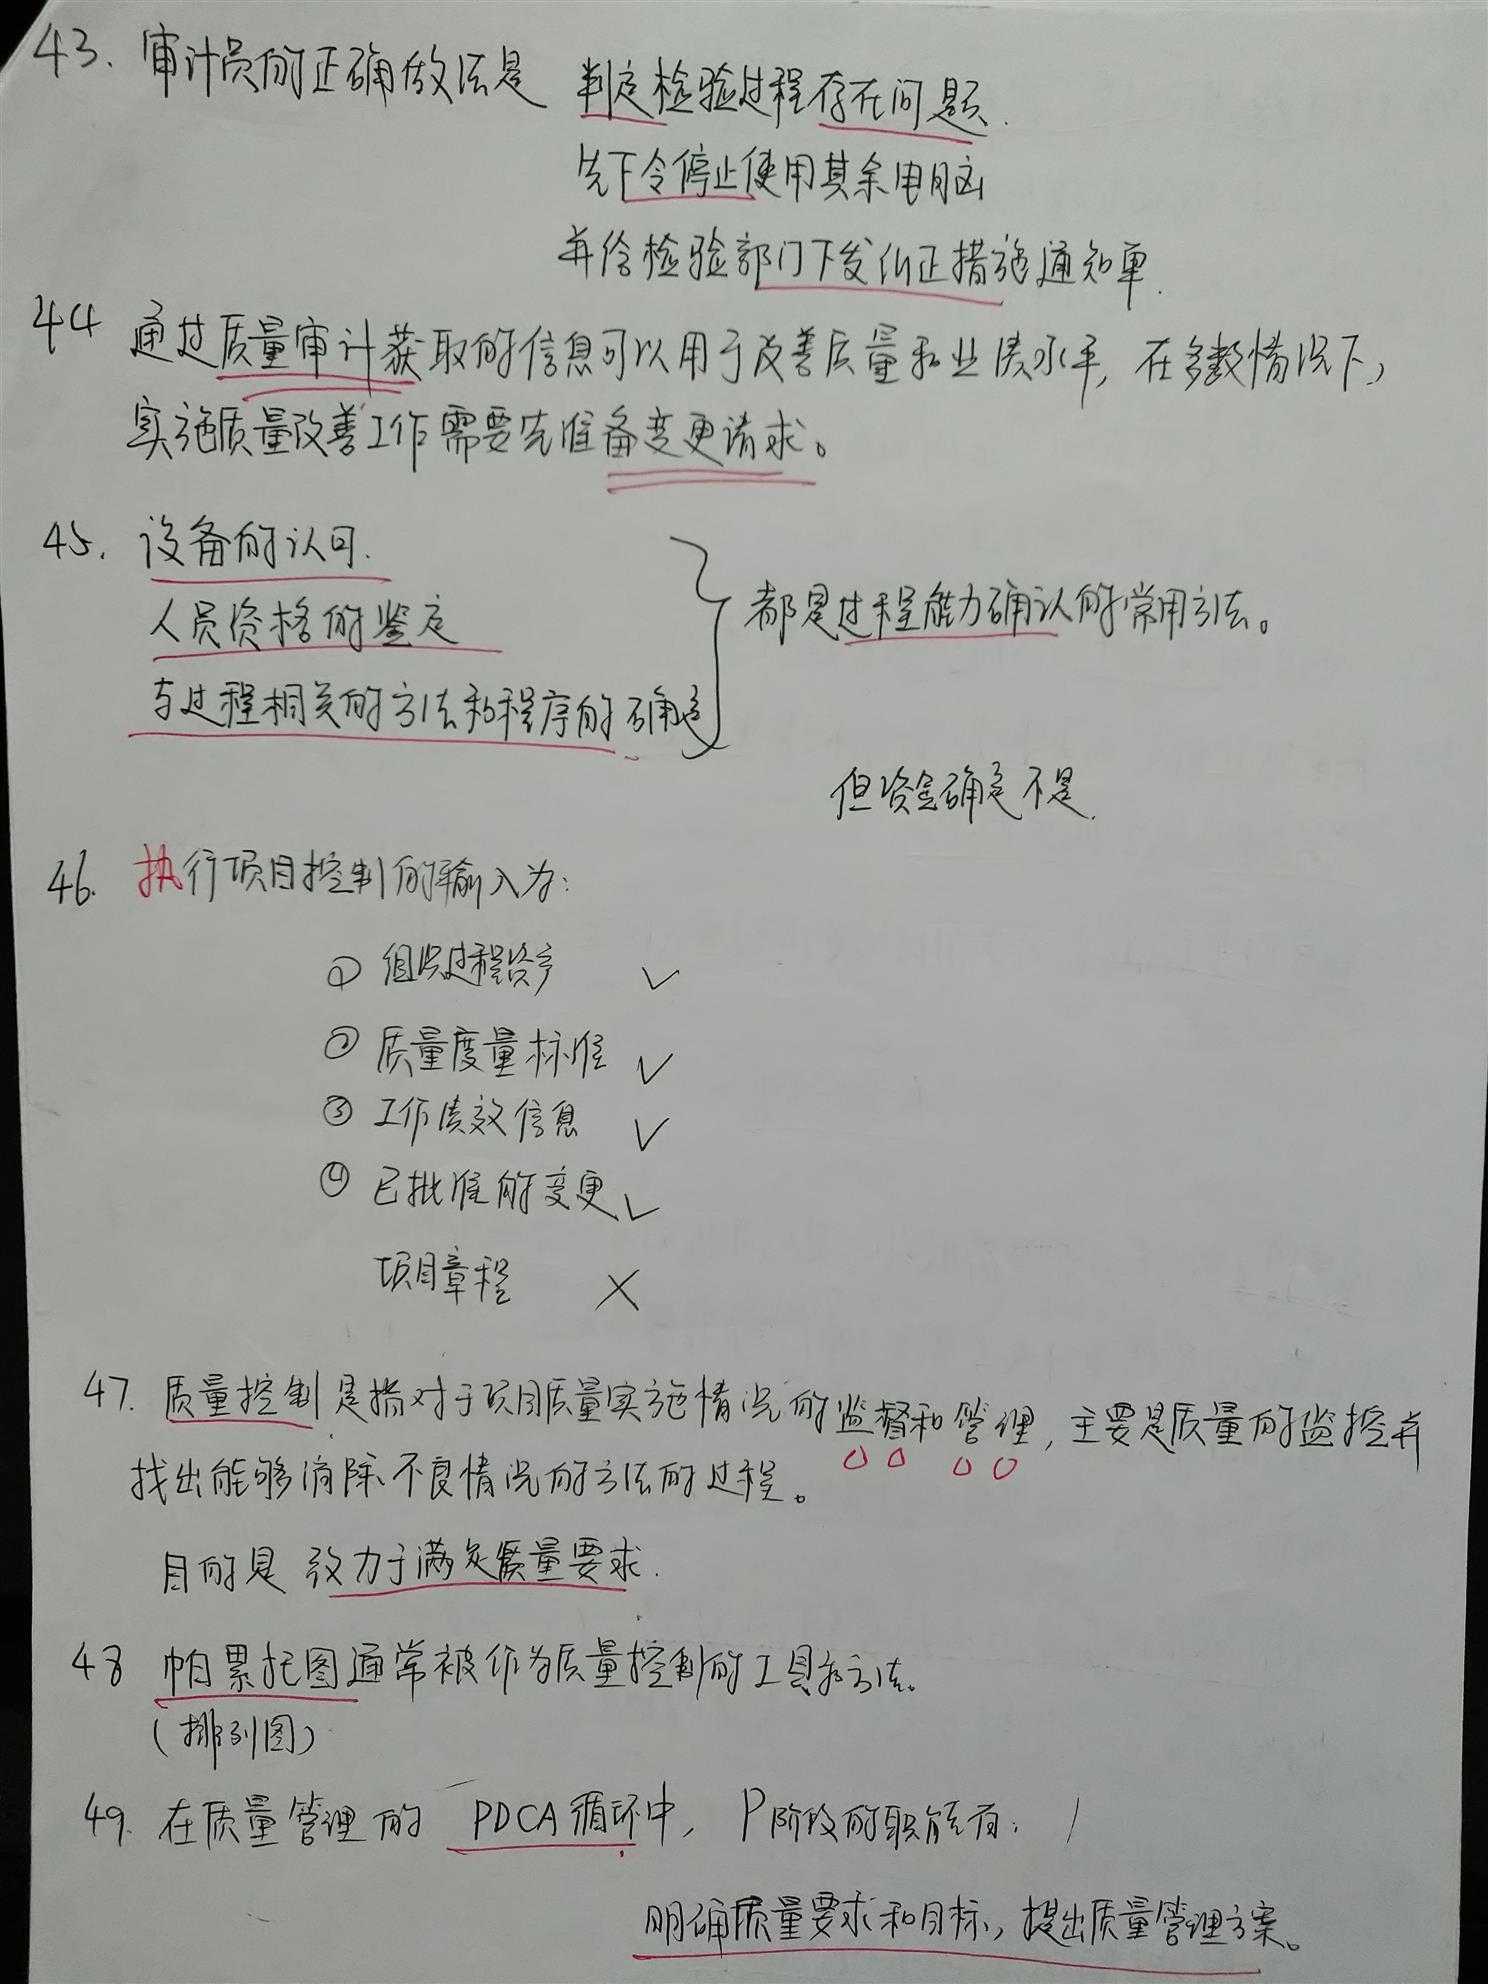 43. 审计员的正确做法是 判定检验过程存在问题.
先下令停止使用其余电脑
并给检验部门下发纠正措施通知单.
44 通过质量审计获取的信息可以用于改善质量和业绩水平, 在多数情况下,
实施质量改善工作需要先准备变更请求。
45. 设备的认可.
人员资格的鉴定
与过程相关的方法和程序的确定
都是过程能力确认的常用方法。
但资金确定不是.
46. 执行项目控制的输入为:
① 组织过程资产 ✓
② 质量度量标准 ✓
③ 工作绩效信息 ✓
④ 已批准的变更 ✓
项目章程 ×
47. 质量控制是指对于项目质量实施情况的监督和管理, 主要是质量的监控并
找出能够消除不良情况的方法的过程。
目的是 致力于满足质量要求.
48 帕累托图通常被作为质量控制的工具和方法。
(排列图)
49. 在质量管理的 PDCA循环中, P阶段的职能有:
明确质量要求和目标, 提出质量管理方案。